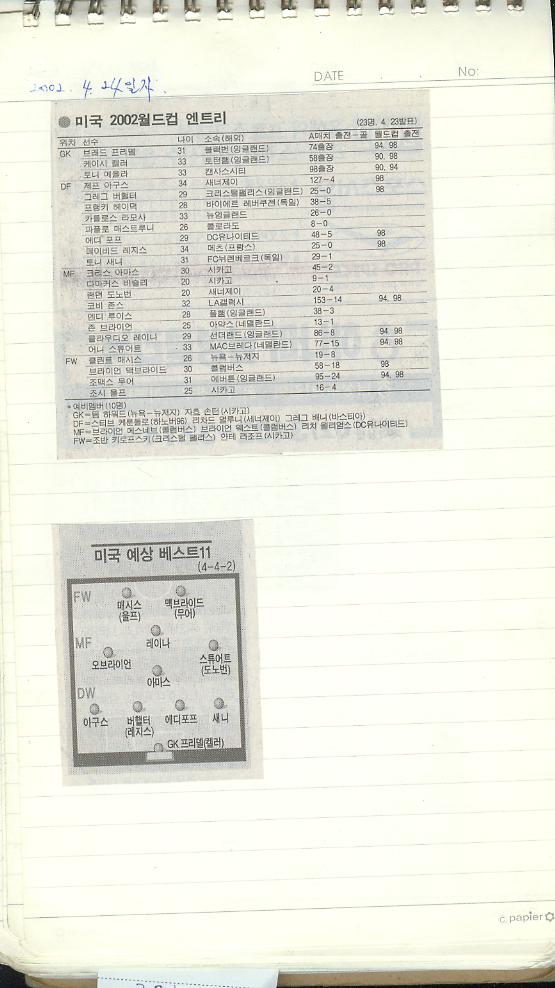 DATE . . No:
2002. 4. 24일자.
● 미국 2002월드컵 엔트리
(23명, 4. 23발표)
위치 선수 나이 소속(해외) A매치 출전-골 월드컵 출전
GK 브래드 프리델 31 블랙번(잉글랜드) 74출장 94, 98
케이시 켈러 33 토턴햄(잉글랜드) 58출장 90, 98
토니 메올라 33 캔사스시티 98출장 90, 94
DF 제프 아구스 34 새너제이 127-4 98
그레그 버핼터 29 크리스탈팰리스(잉글랜드) 25-0 98
프랭키 헤이덕 28 바이에르 레버쿠젠(독일) 38-5
카를로스 라모사 33 뉴잉글랜드 26-0
파블로 매스트루니 26 콜로라도 8-0
에디 포프 29 DC유나이티드 48-5 98
데이비드 레지스 34 메츠(프랑스) 25-0 98
토니 새니 31 FC뉘렌베르크(독일) 29-1
MF 크리스 아마스 30 시카고 45-2
다마커스 비슬리 20 시카고 9-1
랜던 도노번 20 새너제이 20-4
코비 존스 32 LA갤럭시 153-14 94, 98
엔디 루이스 28 풀햄(잉글랜드) 38-3
존 브라이언 25 아약스(네덜란드) 13-1
클라우디오 레이나 29 선더랜드(잉글랜드) 86-8 94, 98
어니 스튜어트 33 MAC브레다(네덜란드) 77-15 94, 98
FW 클린트 매시스 26 뉴욕-뉴저지 19-8
브라이언 맥브라이드 30 콜럼버스 58-18 98
조맥스 무어 31 에버튼(잉글랜드) 95-24 94, 98
조시 울프 25 시카고 16-4
*예비멤버(10명)
GK=팀 하워드(뉴욕-뉴저지) 자흐 손턴(시카고)
DF=스티브 케룬돌로(하노버96) 리차드 멀루니(새너제이) 그레그 배니(바스티아)
MF=브라이언 매스네브(콜럼버스) 브라이언 웨스트(콜럼버스) 리치 윌리엄스(DC유나이티드)
FW=조반 키로프스키(크리스탈 팰리스) 안테 라조프(시카고)
미국 예상 베스트11
(4-4-2)
FW
매시스 맥브라이드
(울프) (무어)
MF 레이나
오브라이언 스튜어트
(도노번)
아마스
DW
아구스 버핼터 에디포프 새니
(레지스)
GK 프리델(켈러)
c. papier